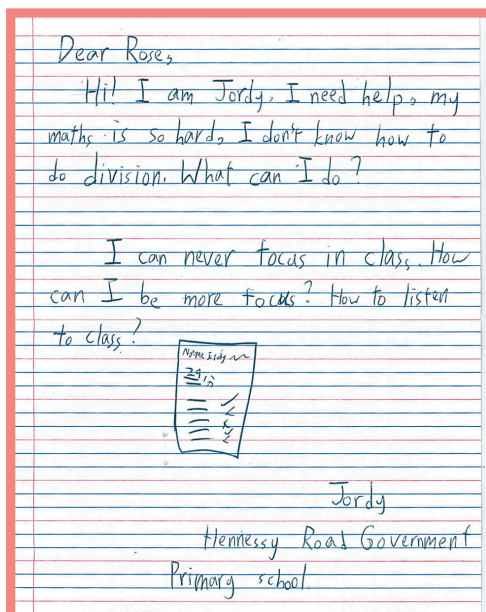 Dear Rose,
Hi! I am Jordy. I need help, my
maths is so hard, I don't know how to
do division. What can I do?
I can never focus in class. How
can I be more focus? How to listen
to class?
Name
Jordy
Hennessy Road Government
Primary school.